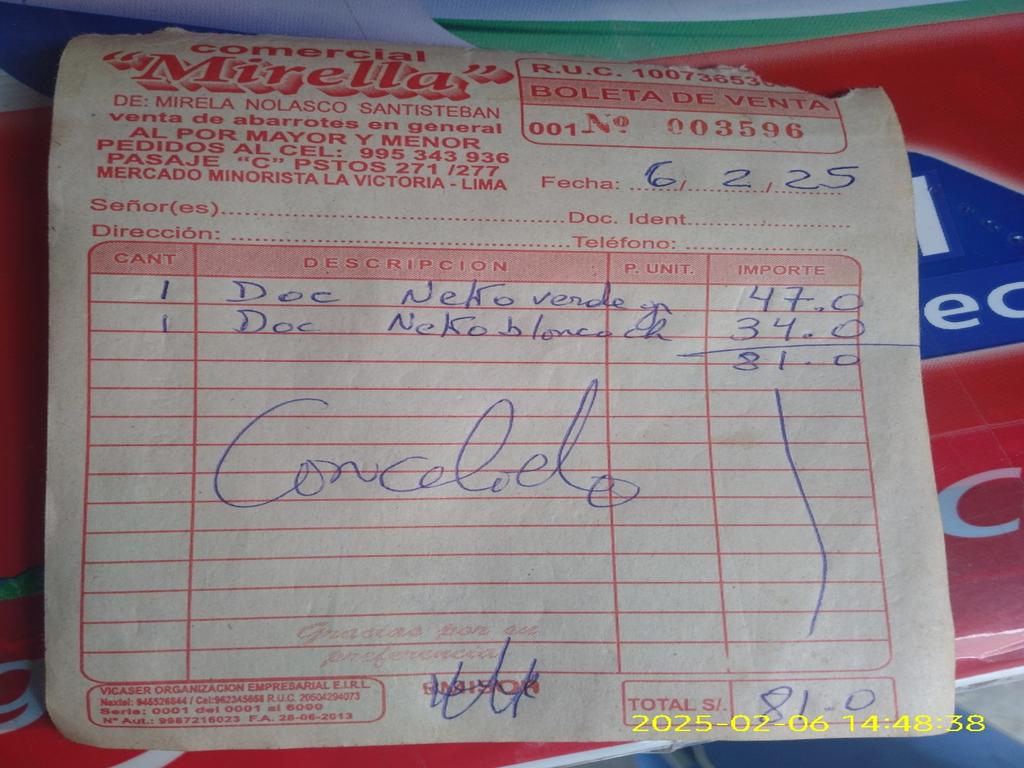 comercial
"Mirella"
DE: MIRELA NOLASCO SANTISTEBAN
venta de abarrotes en general
AL POR MAYOR Y MENOR
PEDIDOS AL CEL: 995 343 936
PASAJE "C" PSTOS 271 /277
MERCADO MINORISTA LA VICTORIA - LIMA
R.U.C. 10073653
BOLETA DE VENTA
001 Nº 003596
Fecha: 6 / 2 / 25
Señor(es) Doc. Ident.
Dirección: Teléfono:
CANT DESCRIPCION P. UNIT. IMPORTE
1 Doc Neko verde gr 47.0
1 Doc Neko blanco ch 34.0
81.0
Cancelado
Gracias por su
preferencia
VICASER ORGANIZACION EMPRESARIAL E.I.R.L.
Nextel: 946526844 / Cel:962345658 R.U.C. 20504294073
Serie: 0001 del 0001 al 6000
Nº Aut.: 9987216023 F.A. 28-06-2013
EMISOR
TOTAL S/. 81.0
2025-02-06 14:48:38
ec
C